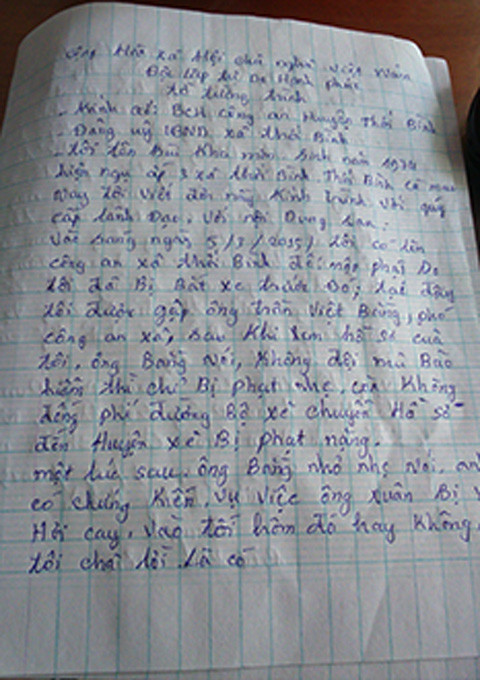 Cộng Hòa xã Hội chủ nghĩa Việt Nam
Độc lập tự Do Hạnh phúc
tờ tường trình
- Kính gởi BCH công an Huyện Thới Bình
- Đảng uỷ UBND xã thới Bình
- tôi tên Bùi Khá mỡn. Sinh năm 1974
hiện ngụ ấp 3 xã thới Bình, Thới Bình cà mau
Nay tôi viết đơn này Kính trình với quý
cấp Lãnh Đạo. với nội Dung sau:
vào sáng ngày 5/3/2015, tôi có lên
công an xã thới Bình để nộp phạt Do
tôi đã Bị Bắt xe trước Đó, tại đây
tôi được gặp ông trần việt Bằng, phó
công an xã, sau Khi xem hồ sơ của
tôi, ông Bằng Nói, Không đội mũ Bảo
hiểm thì chỉ Bị phạt nhẹ, còn Không
đóng phí đường Bộ xẽ chuyển Hồ sơ
đến Huyện xẽ Bị phạt nặng.
một lúc sau, ông Bằng nhỏ nhẹ nói, anh
có chứng Kiến, vụ việc ông xuân Bị
Hơi cay, vào tối hôm đó hay Không,
tôi chả lời Là có